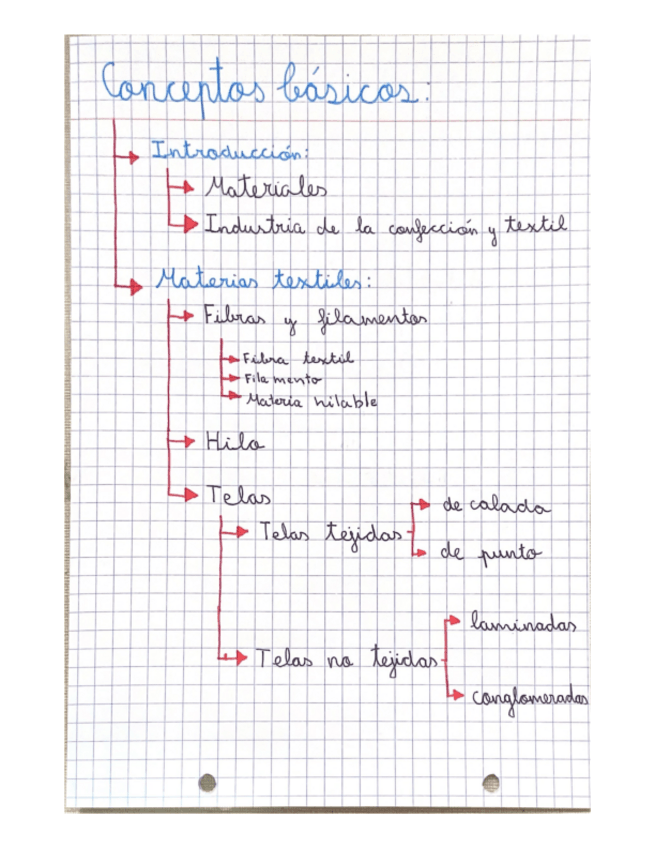 Conceptos básicos:
Introducción:
Materiales
Industria de la confección y textil
Materias textiles:
Fibras y filamentos
Fibra textil
Filamento
Materia hilable
Hilo
Telas
Telas tejidas
de calada
de punto
Telas no tejidas
laminadas
conglomeradas